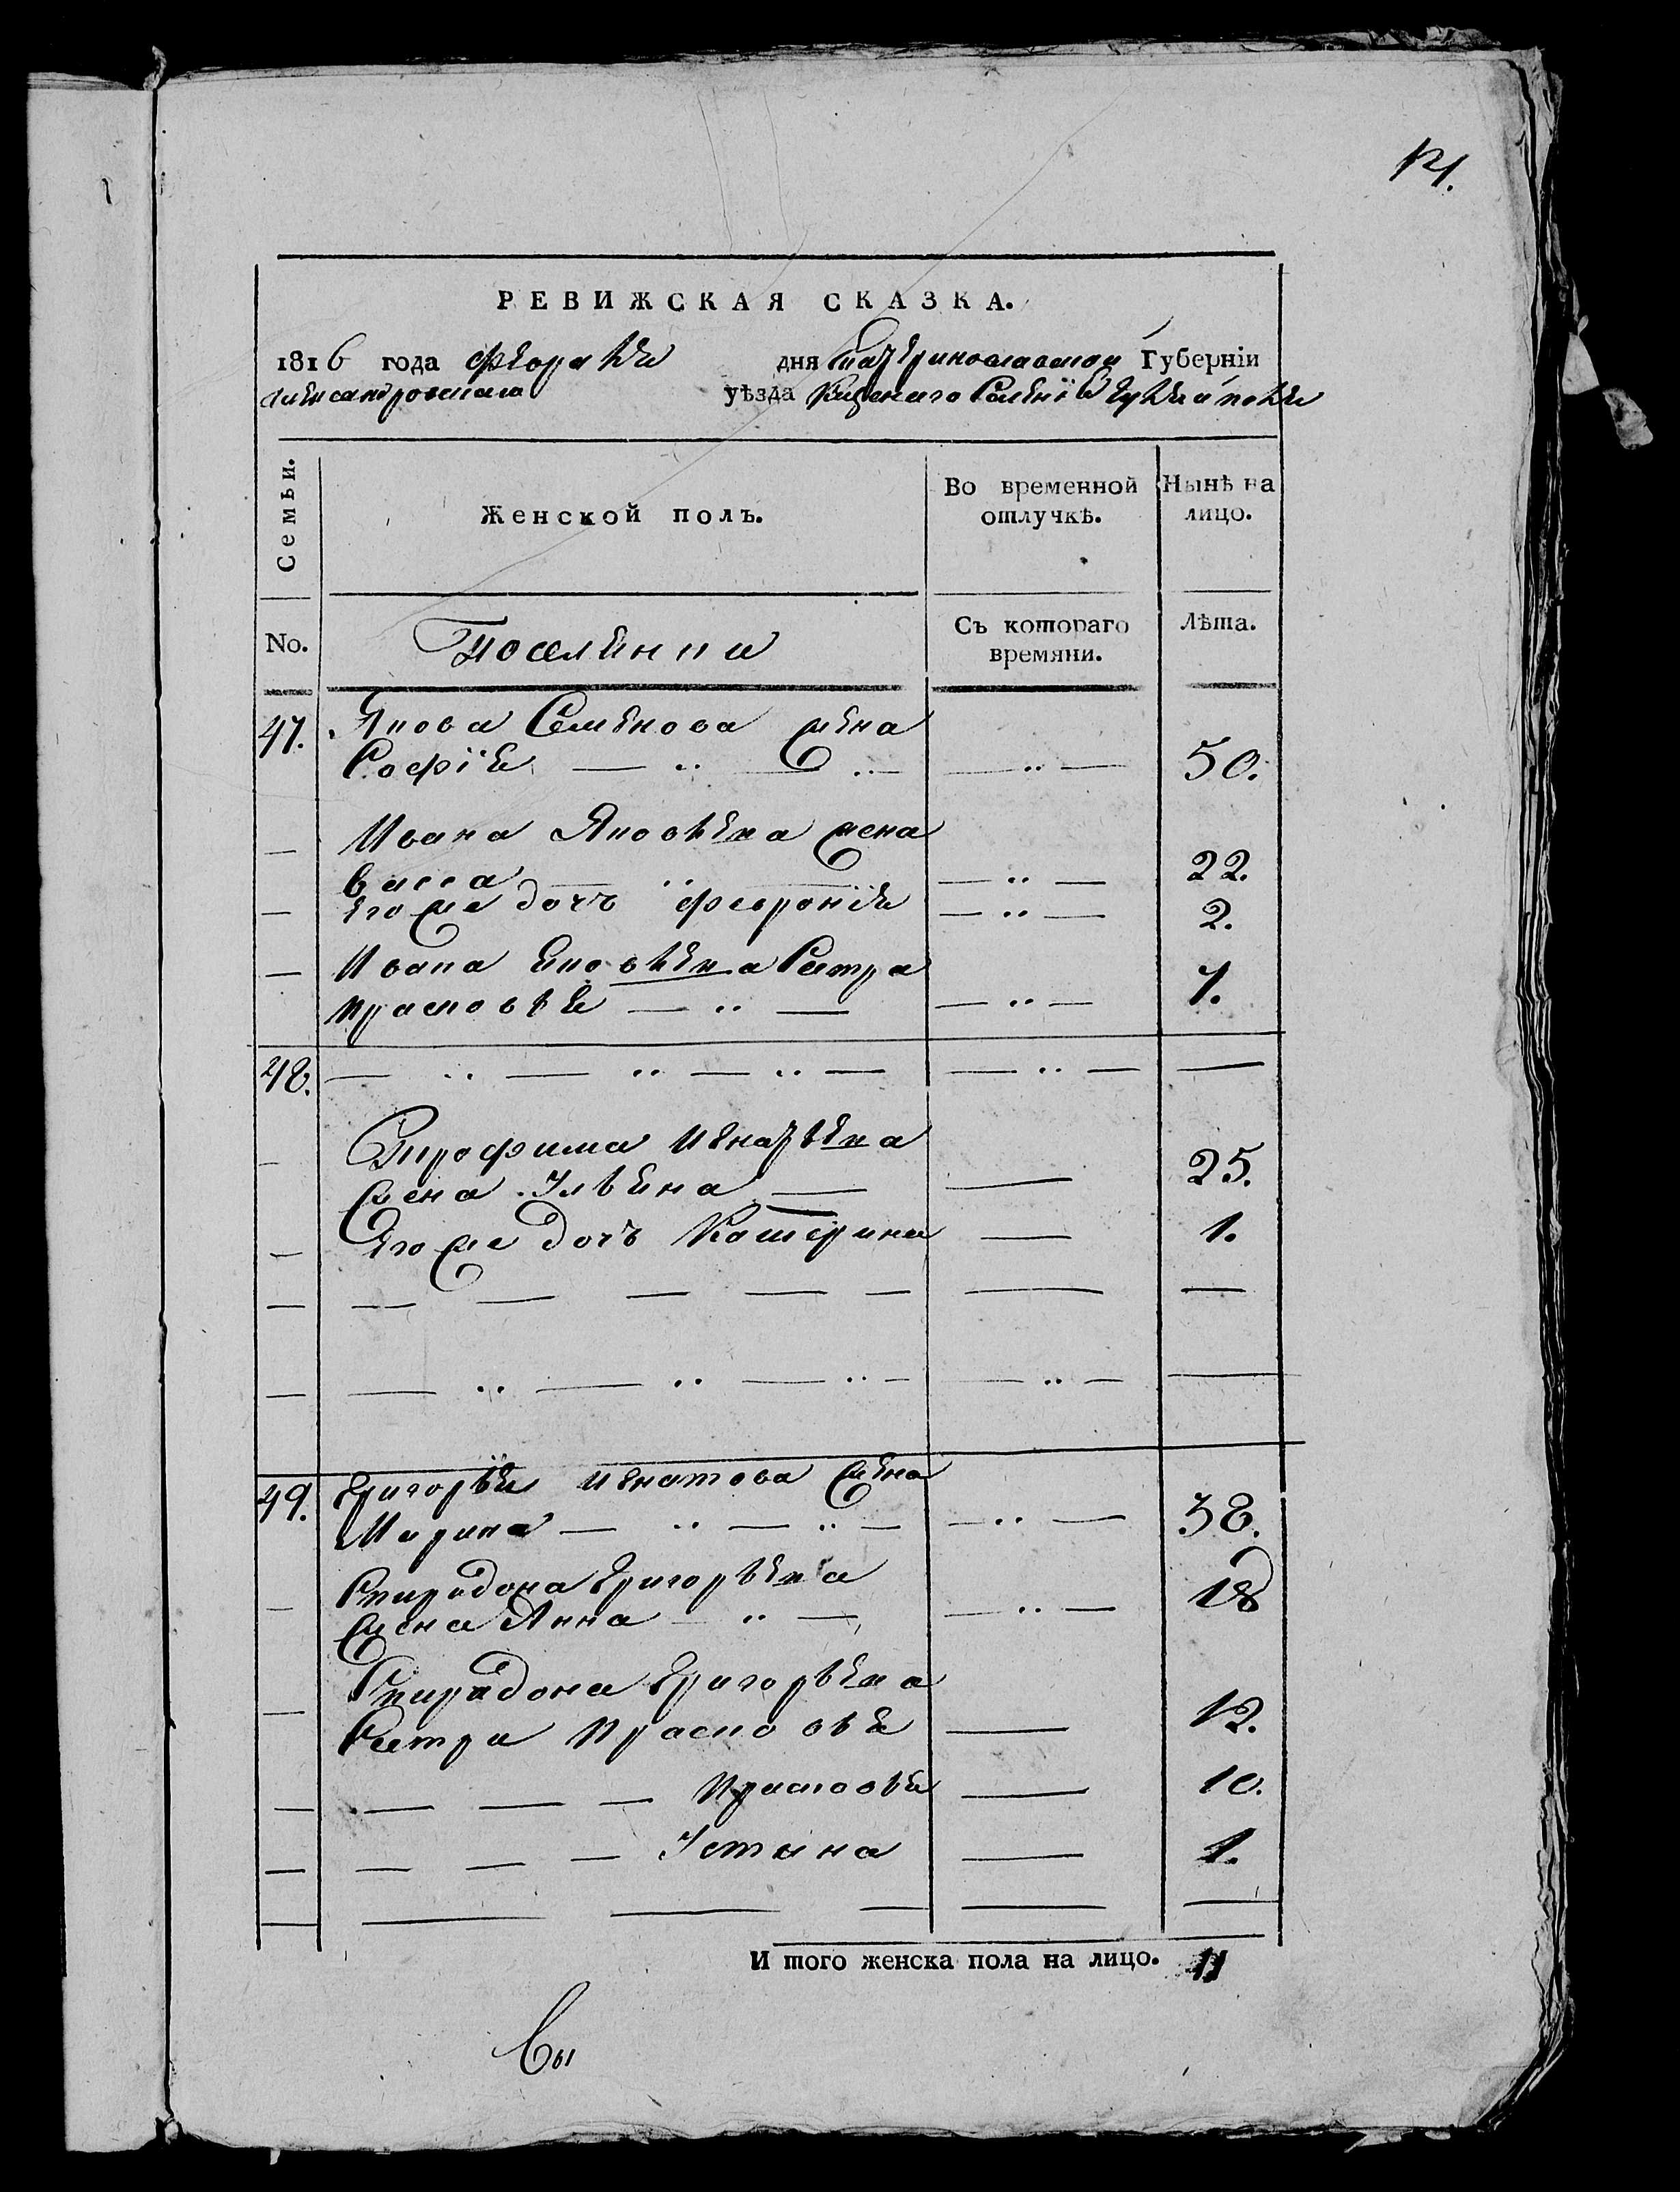 121.
РЕВИЖСКАЯ СКАЗКА.
1816 года февраля дня Екатеринославской Губерніи
Александровскаго уѣзда Казеннаго Селенія
Семьи. Женской полъ. Во временной отлучкѣ. Нынѣ на лицо.
No. Поселянки Съ котораго времяни. Лѣта.
47. Якова Семенова жена
Софія — „ — — „ — 50.
— Ивана Яковлева жена
Васса — „ — — „ — 22.
— Его же дочь Феврония — „ — 2.
— Ивана Яковлева Сестра
Прасковья — „ — — „ — 7.
48. — „ — „ — „ — — „ — —
— Трофима Игнатьева
жена Ульяна — — 25.
— Его же дочь Катерина — 1.
— — — — — — — —
— — „ — „ — „ — — „ — —
49. Григорья Игнатова жена
Марина — „ — „ — — „ — 38.
— Спиридона Григорьева
жена Анна — „ — — „ — 18
— Спиридона Григорьева
Сестра Прасковья — 12.
— — — — Прасковья — 10.
— — — — Устина — 1.
— — — — — —
И того женска пола на лицо. 11